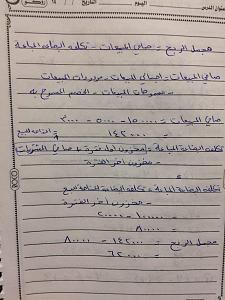 اليوم التاريخ
مجمل الربح = صافي المبيعات - تكلفة البضاعة المباعة
صافي المبيعات = اجمالي المبيعات - مردودات المبيعات
- مسموحات المبيعات - الخصم المسموح به
صافي المبيعات = ١٥٠٠٠٠ - ٥٠٠٠ - ٣٠٠٠
= ١٤٢٠٠٠
تكلفة البضاعة المباعة = مخزون اول فترة + صافي المشتريات
- مخزون آخر الفترة
تكلفة البضاعة المباعة = تكلفة البضاعة المتاحة للبيع
- المخزون آخر الفترة
= ١٠٠٠٠٠ - ٢٠٠٠٠
= ٨٠٠٠٠
مجمل الربح = ١٤٢٠٠٠ - ٨٠٠٠٠
= ٦٢٠٠٠